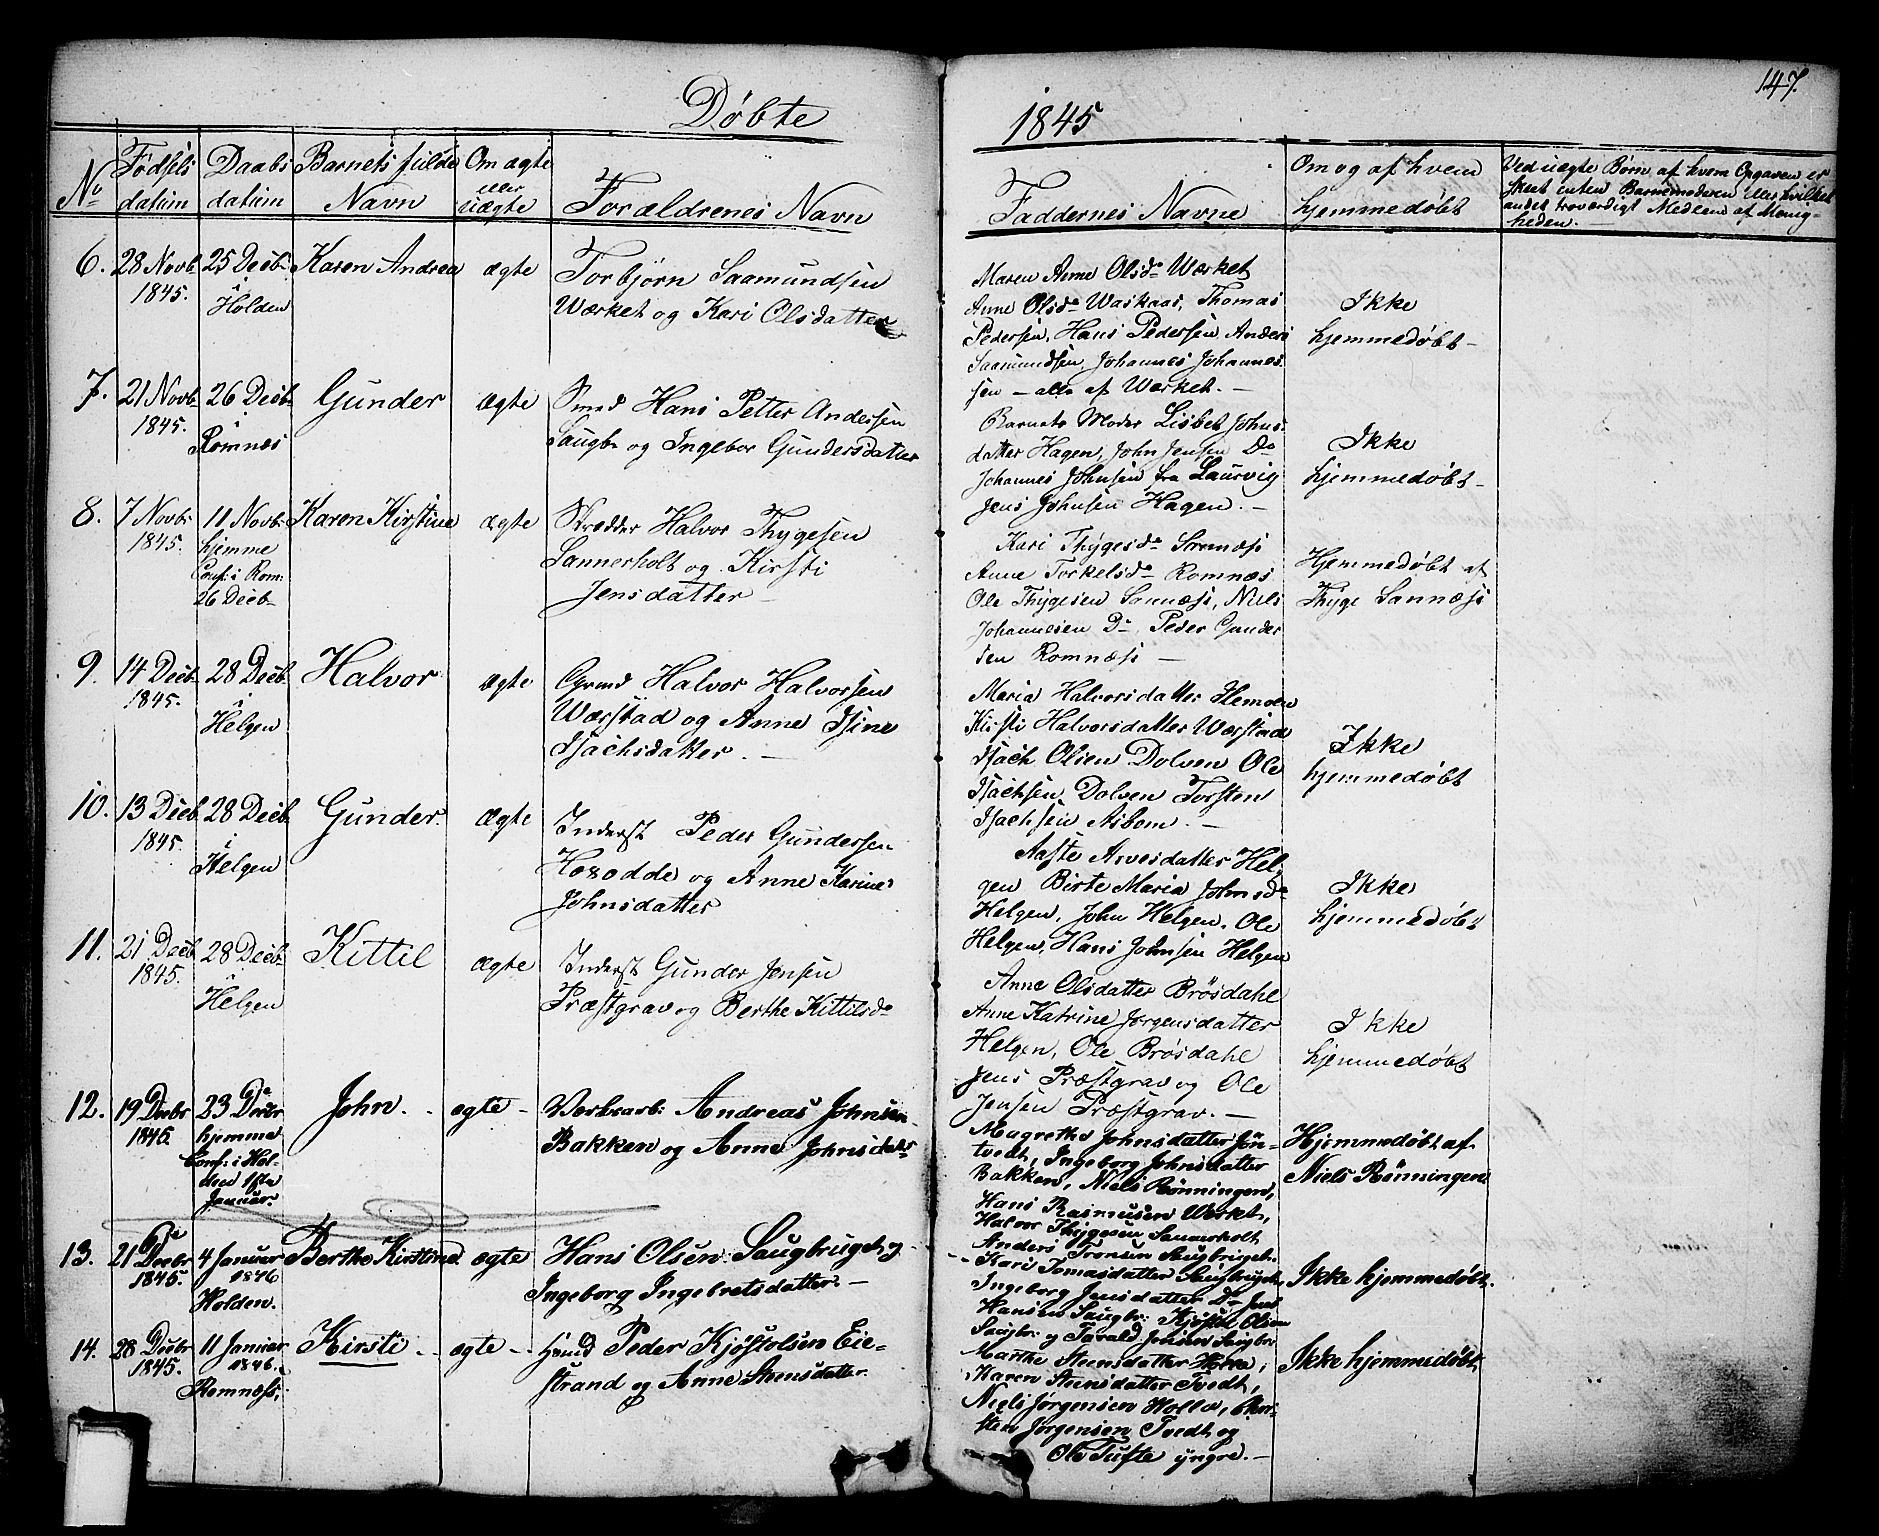 Døbte
1845
147.
No
Fødsels datum
Daabs datum
Barnets fulde Navn
Om ægte eller uægte
Forældrenes Navn
Faddernes Navne
Om og af hvem hjemmedøbt
Ved uægte Børn af hvem Opgaven er
skeet enten Barnemoderen eller hvilket
andet troværdigt Medlem af Menig-
heden.
6.
28 Novb.
1845.
25 Decb.
i
Holden
Karen Andrea
ægte
Torbjørn Saamundsen
Værket og Kari Olsdatter
Maren Anne Olsd. Værket
Anne Olsd. Thomas
Pedersen, Hans Pedersen, Anders
Saamundsen, Johannes Johannes-
sen – alle af Værket. –
Ikke
hjemmedøbt –
7.
21 Novb.
1845.
26 Decb.
i
Romnæs
Gunder
ægte
Smed Hans Petter Andersen
Saugb. og Ingebor Gundersdatter
Barnets Moder Lisbet Johns-
datter Hagen, John Jensen Do
Johannes Johnsen fra Laurvig
Jens Johnsen Hagen. –
Ikke
hjemmedøbt –
8.
7 Novb.
1845.
11 Novb.
hjemme
Conf: i Rom:
26 Decb.
Karen Kirstine
ægte
Skrædder Halvor Thygesen
Sannerholt og Kirsti
Jensdatter –
Kari Thygesd.
Anne Torkelsd. Romnæs
Ole Thygesen Sannæs, Niels
Johannesen Do, Peder Gunder
sen Romnæs –
Hjemmedøbt af
Thyge Sannæs
9.
14 Decb.
1845.
28 Decb.
i
Helgen
Halvor
ægte
Grmd Halvor Halvorsen
Værstad og Anne Isine
Isachsdatter. –
Maria Halvorsdatter
Kirsti Halvorsdatter Værstad
Isach Olsen Dolven Ole
Isachsen Dolven Torsten
Isachsen Aasbom. –
Ikke
hjemmedøbt
10.
13 Decb.
1845.
28 Decb.
i
Helgen
Gunder.
ægte
Inderst Peder Gundersen
og Anne Karine
Johnsdatter
Aaste Arvesdatter Hel-
gen Birte Maria Johnsd.
Helgen, John Helgen, Ole
Helgen, Hans Johnsen Helgen
Ikke
hjemmedøbt
11.
21 Decb
1845.
28 Decb.
i
Helgen
Kittil
ægte
Inderst Gunder Jensen
Præstgrav og Berthe Kittilsd.
Anne Olsdatter Brøsdahl
Anne Katrine Jørgensdatter
Helgen, Ole Brøsdahl
Jens Præstgrav og Ole
Jensen Præstgrav. –
Ikke
hjemmedøbt
12.
19 Decbr
1845.
23 De
Decbr
hjemme
Conf: i Hol-
den 1ste
Januar.
John.
ægte –
Verksarb: Andreas Johnsen
Bakken og Anne Johnsdatr
Magrethe Johnsdatter Jøn-
tvedt, Ingeborg Johnsdatter
Bakken, Niels Rønningen,
Hans Rasmusen Værket,
Halvor Thygesen Sannerholt
Hjemmedøbt af
Niels Rønningen
13.
21 Decbr
1845.
4 Januar
1846
Holden.
Berthe Kirstine
ægte
Hans Olsen Saugbruget og
Ingeborg Ingebretsdatter. –
Anders Tronsen Saugbruget.
– Kari Tomasdatter Saugbruget,
Ingeborg Jensdatter Do Jens
Hansen Saugbr: Kjøstol Olsen
Saugbr: og Tarald Jensen Saugbr:
Ikke hjemmedøbt.
14.
28 Decbr
1845.
11 Januar
1846.
Romnæs.
Kirsti
ægte –
Grmd Peder Kjøstolsen Eie-
strand og Anne Steensdatter.
Marthe Steensdatter Holla,
Karen Steensdatter Tvedt,
Niels Jørgensen Holla,
Jørgensen Tvedt og
Ole Tufte yngre. –
Ikke hjemmedøbt